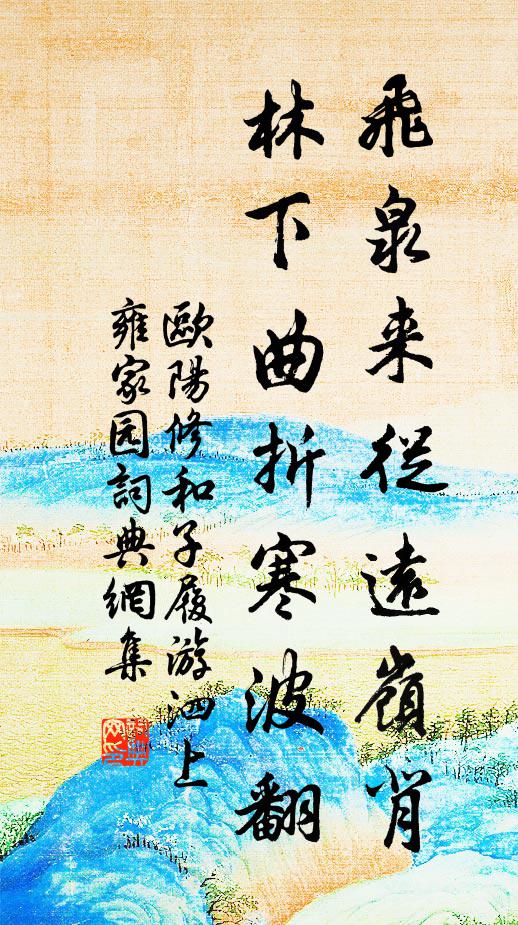 飛泉来從遠嶺背
林下曲折寒波翻
歐陽修和子履游泗上
雍家园詞典網集